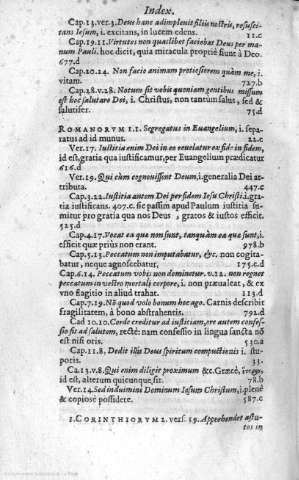 Index.
Cap.13.ver.3. Deus hanc adimpleuit filiis nostris, resusci-
tans Iesum, i. excitans, in lucem edens. 11.c
Cap.19.11. Virtutes non quaslibet faciebat Deus per ma-
num Pauli. hoc dicit, quia miracula proprie sunt à Deo.
677.d
Cap.20.24. Non facio animam pretiosiorem quàm me, i.
vitam. 727.b
Cap.28.v.28. Notum sit vobis quoniam gentibus missum
est hoc salutare Dei, i. Christus, non tantùm salus, sed &
salutifer. 75.d
ROMANORVM I.1. Segregatus in Euangelium, i. sepa-
ratus ad id munus. 22.c
Ver.17. Iustitia enim Dei in eo reuelatur ex fide in fidem,
id est, gratia qua iustificamur, per Euangelium prædicatur
616.d
Ver.19. Qui cùm cognouissent Deum, i. generalia Dei at-
tributa. 447.c
Cap.3.22. Iustitia autem Dei per fidem Iesu Christi, i. gra-
tia iustificans. 407.c. sic passim apud Paulum iustitia su-
mitur pro gratia qua nos Deus gratos & iustos efficit.
525.d
Cap.4.17. Vocat ea quæ non sunt, tanquàm ea quæ sunt, i.
efficit quæ prius non erant. 978.b
Cap.5.13. Peccatum non imputabatur, &c. non cogita-
batur, neque agnoscebatur. 175.c.d
Cap.6.14. Peccatum vobis non dominetur. v.12. non regnet
peccatum in vestro mortali corpore, i. non præualeat, & ex
vno flagitio in aliud trahat. 113.d
Cap.7.19. Nõ quod volo bonum hoc ago. Carnis describit
fragilitatem, à bono abstrahentis. 792.d
Cad 10.10. Corde creditur ad iustitiam, ore autem confes-
sio fit ad salutem, rectè: nam confessio in lingua sancta nõ
est nisi oris. 530.a
Cap.11.8. Dedit illis Deus spiritum compunctionis i. stu-
poris. 33.
Ca.13.v.8. Qui enim diligit proximum &c. Græcè,
id est, alterum quicunque sit. 78.b
Ver.14. Sed induimini Dominum Iesum Christum, i. plenè
& copiosè possidete. 587.c
I. CORINTHIORVM I. vers. 19. Apprehendet astu-
tos in